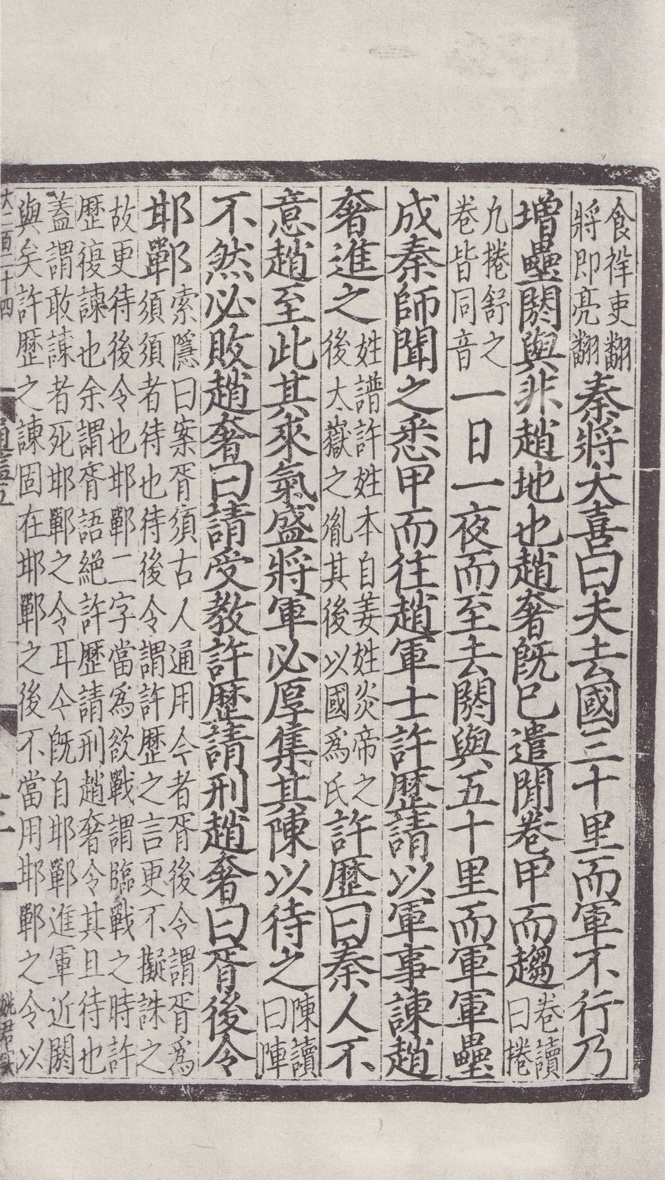 食祥吏翻將即亮翻秦將大喜曰夫去國三十里而軍不行乃
增壘閼與非趙地也趙奢旣已遣閒卷甲而趨卷讀曰捲
凡捲舒之卷皆同音一日一夜而至去閼與五十里而軍軍壘
成秦師聞之悉甲而往趙軍士許歷請以軍事諫趙
奢進之姓譜許姓本自姜姓炎帝之後大嶽之胤其後以國爲氏許歷曰秦人不
意趙至此其來氣盛將軍必厚集其陳以待之陳讀曰陣
不然必敗趙奢曰請受教許歷請刑趙奢曰胥後令
邯鄲索隱曰案胥須古人通用今者胥後令謂胥爲須須者待也待後令謂許歷之言更不擬誅之
故更待後令也邯鄲二字當爲欲戰謂臨戰之時許
歷復諫也余謂胥語絶許歷請刑趙奢令其且待也
蓋謂敢諫者死邯鄲之令耳今旣自邯鄲進軍近閼
與矣許歷之諫固在邯鄲之後不當用邯鄲之令以